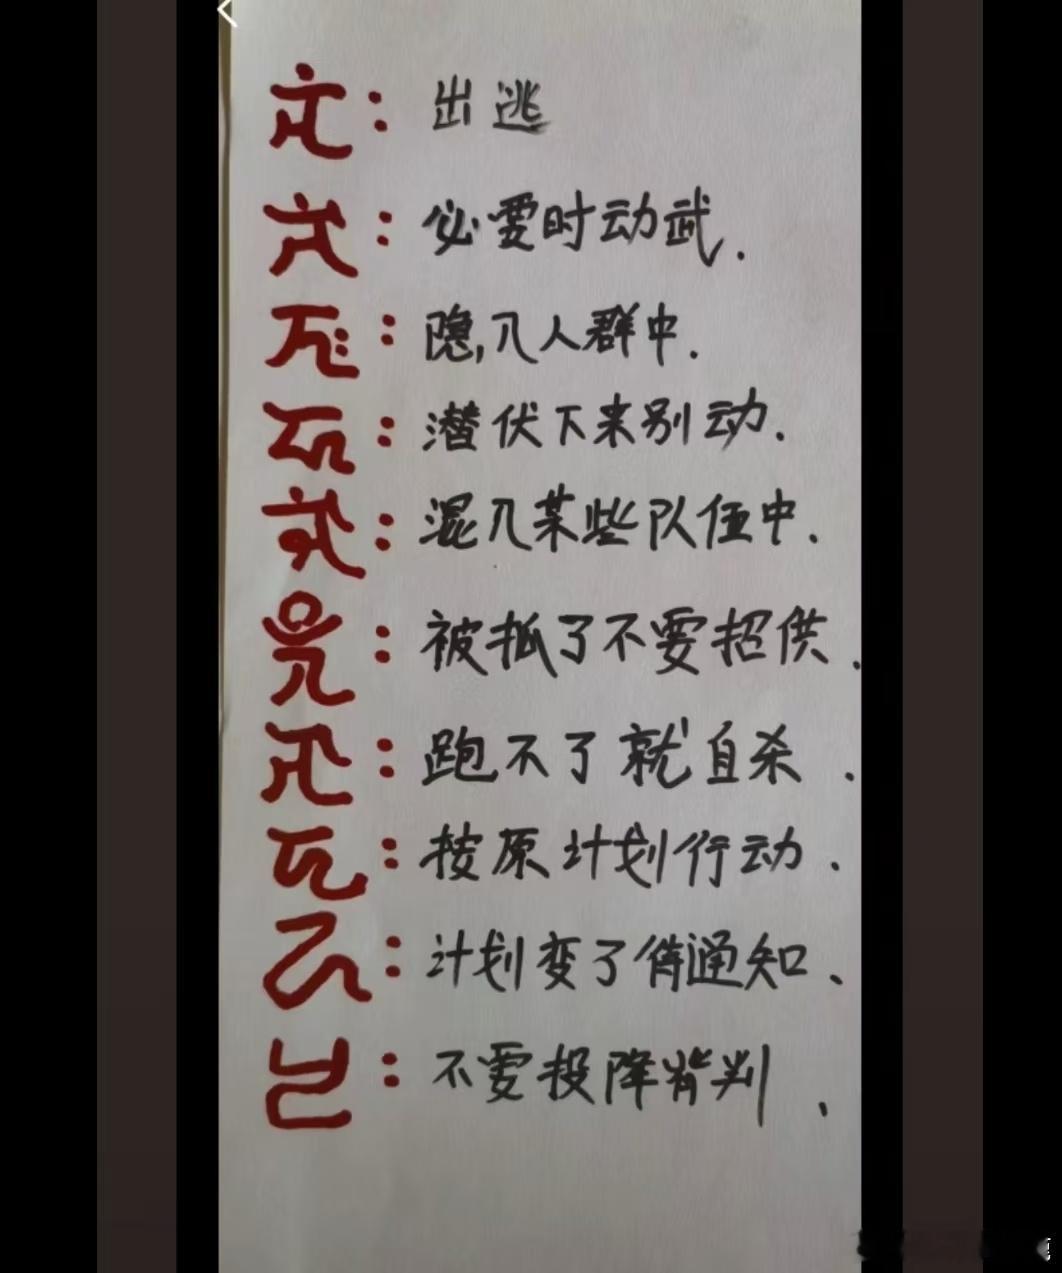 : 出逃
: 必要时动武.
: 隐,入人群中.
: 潜伏下来别动.
: 混入某些队伍中.
: 被抓了不要招供.
: 跑不了就自杀.
: 按原计划行动.
: 计划变了待通知.
: 不要投降背判.